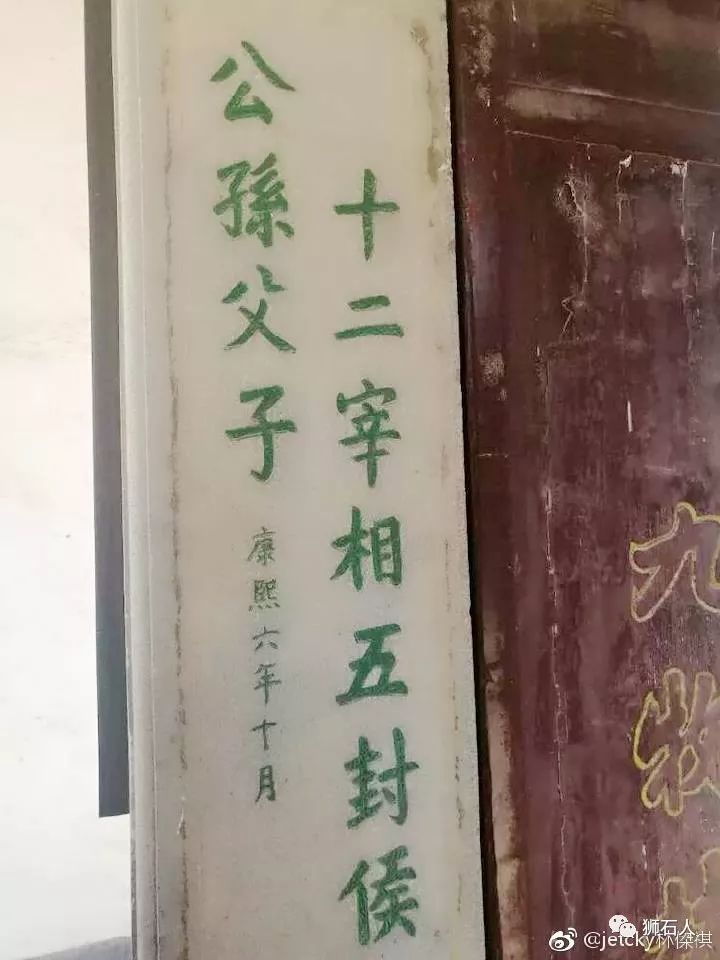 十二宰相五封侯
公孫父子
康熙六年十月
九
狮石人
@jetcky林傑祺